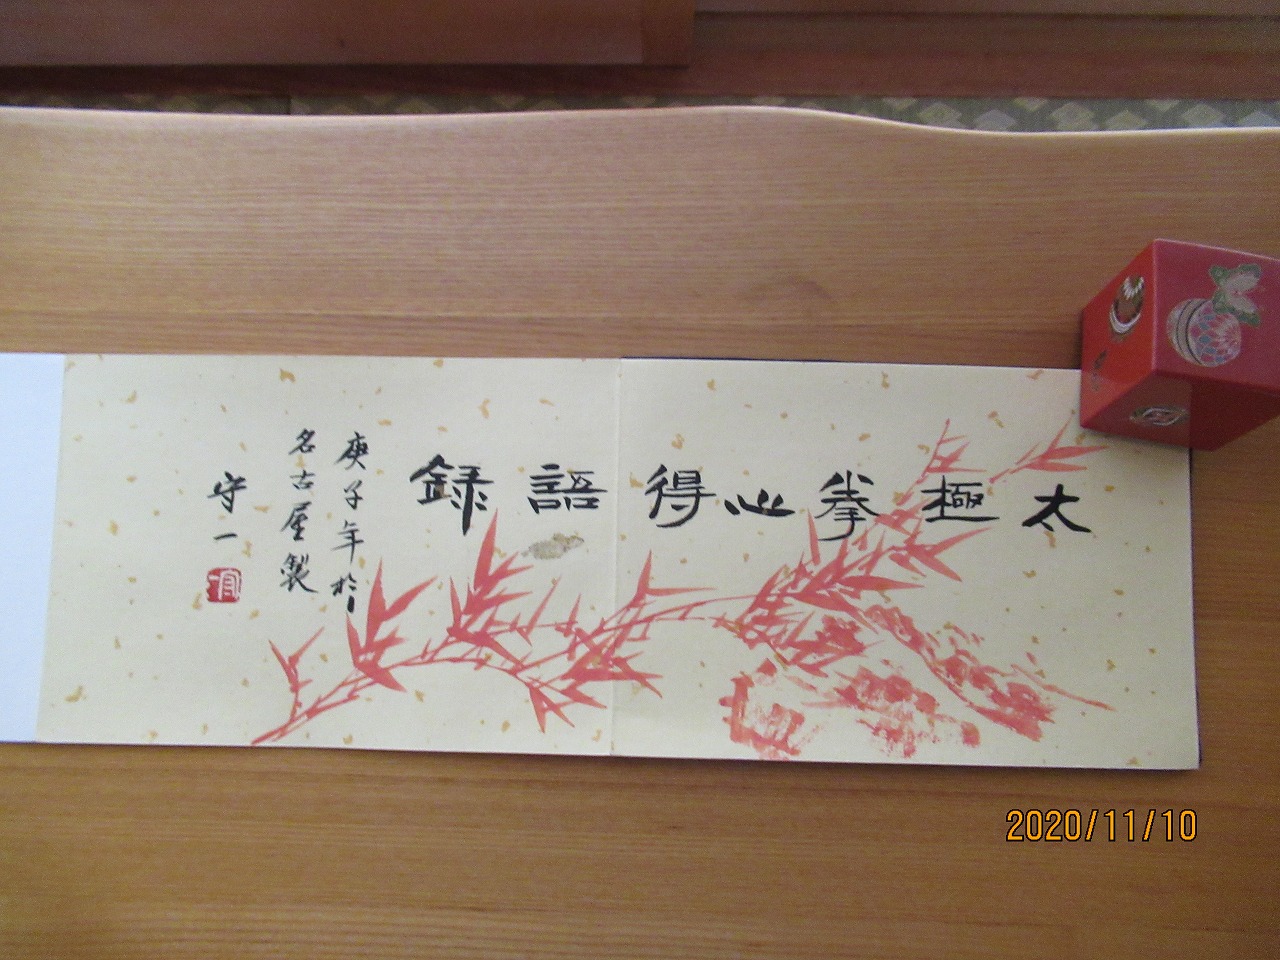 太極拳心得語録
庚子年於
名古屋製
守一
2020/11/10